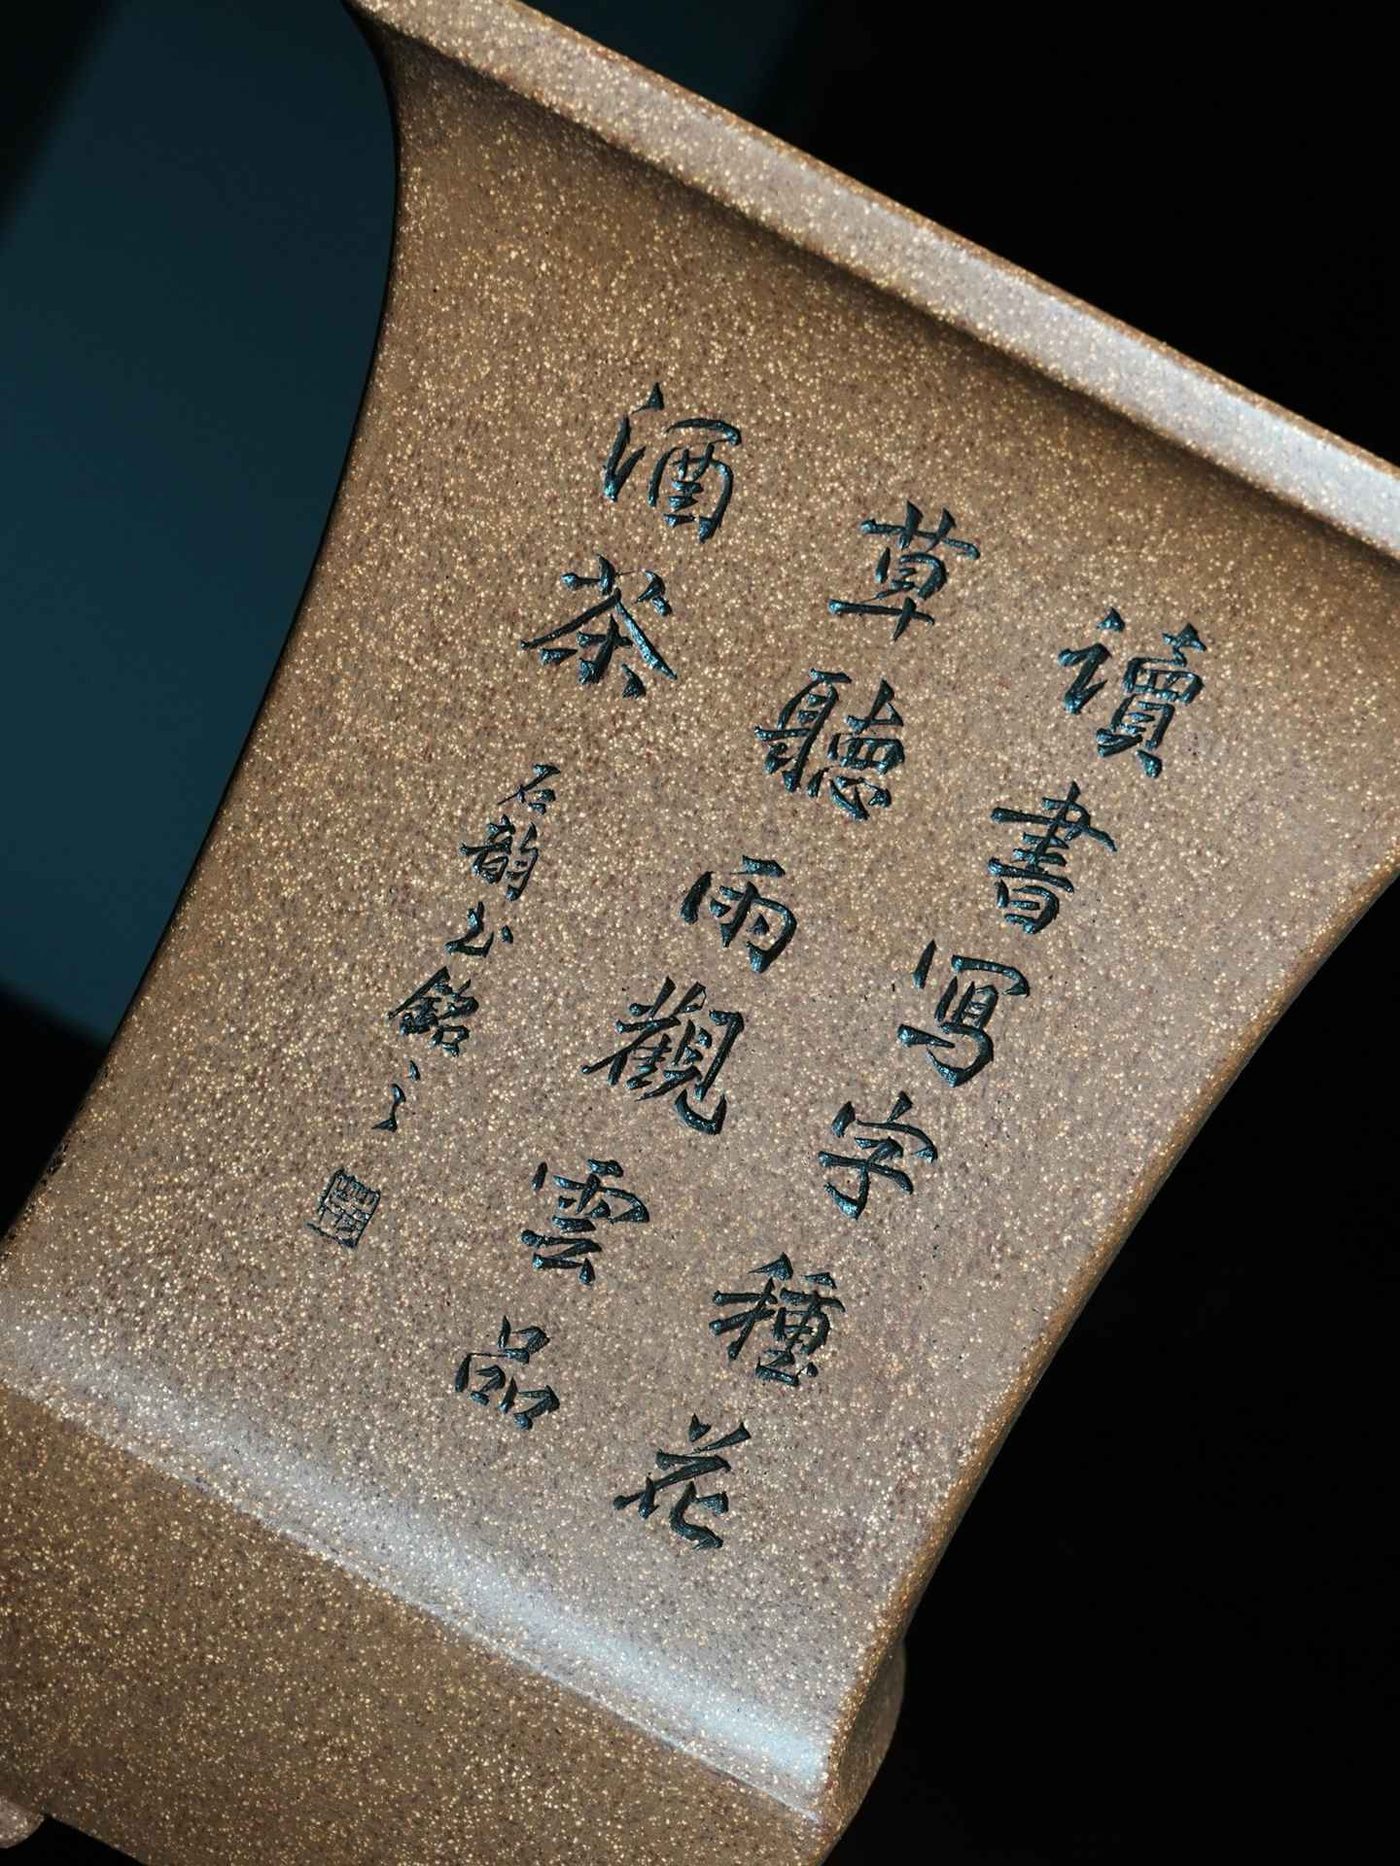 讀書寫字種花
草聽雨觀雲品
酒茶
石韵书銘